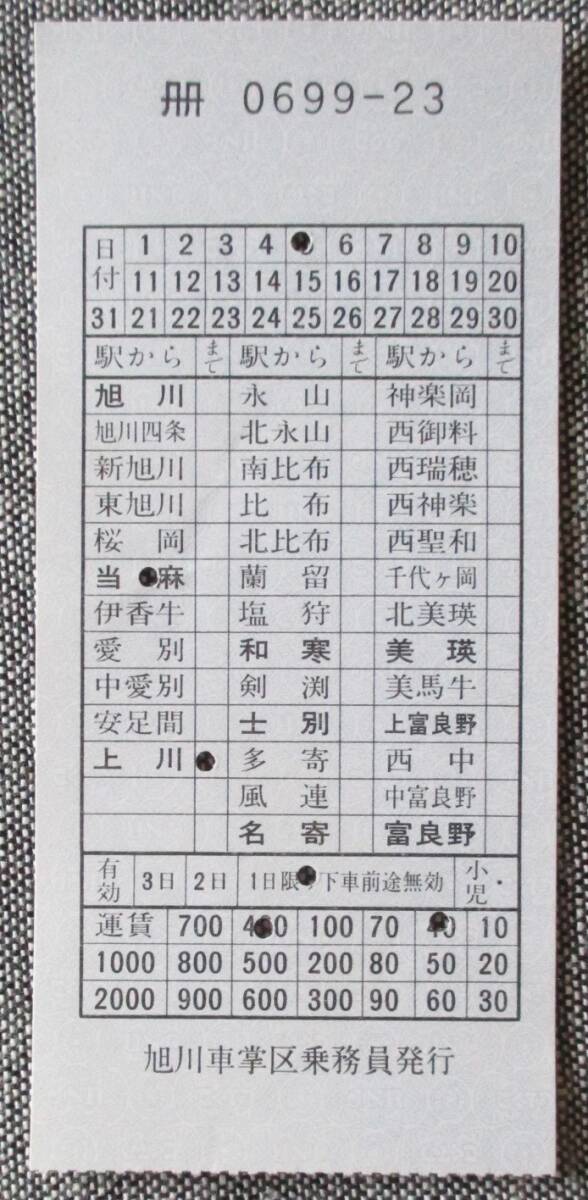 冊 0699-23
日付 1 2 3 4 6 7 8 9 10
11 12 13 14 15 16 17 18 19 20
31 21 22 23 24 25 26 27 28 29 30
駅から まで 駅から まで 駅から まで
旭川 永山 神楽岡
旭川四条 北永山 西御料
新旭川 南比布 西瑞穂
東旭川 比布 西神楽
桜岡 北比布 西聖和
当麻 蘭留 千代ヶ岡
伊香牛 塩狩 北美瑛
愛別 和寒 美瑛
中愛別 剣渕 美馬牛
安足間 士別 上富良野
上川 多寄 西中
風連 中富良野
名寄 富良野
有効 3日 2日 1日限り 下車前途無効 小児・
運賃 700 400 100 70 40 10
1000 800 500 200 80 50 20
2000 900 600 300 90 60 30
旭川車掌区乗務員発行